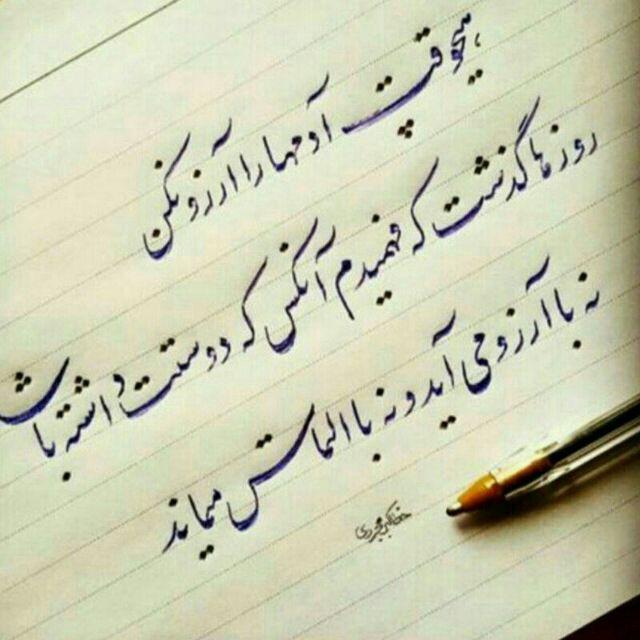 هیچوقت آدمها را آرزو نکن
روزها گذشت که فهمیدم آنکس که دوستت داشته باشد
نه با آرزو می آید و نه با التماس میماند